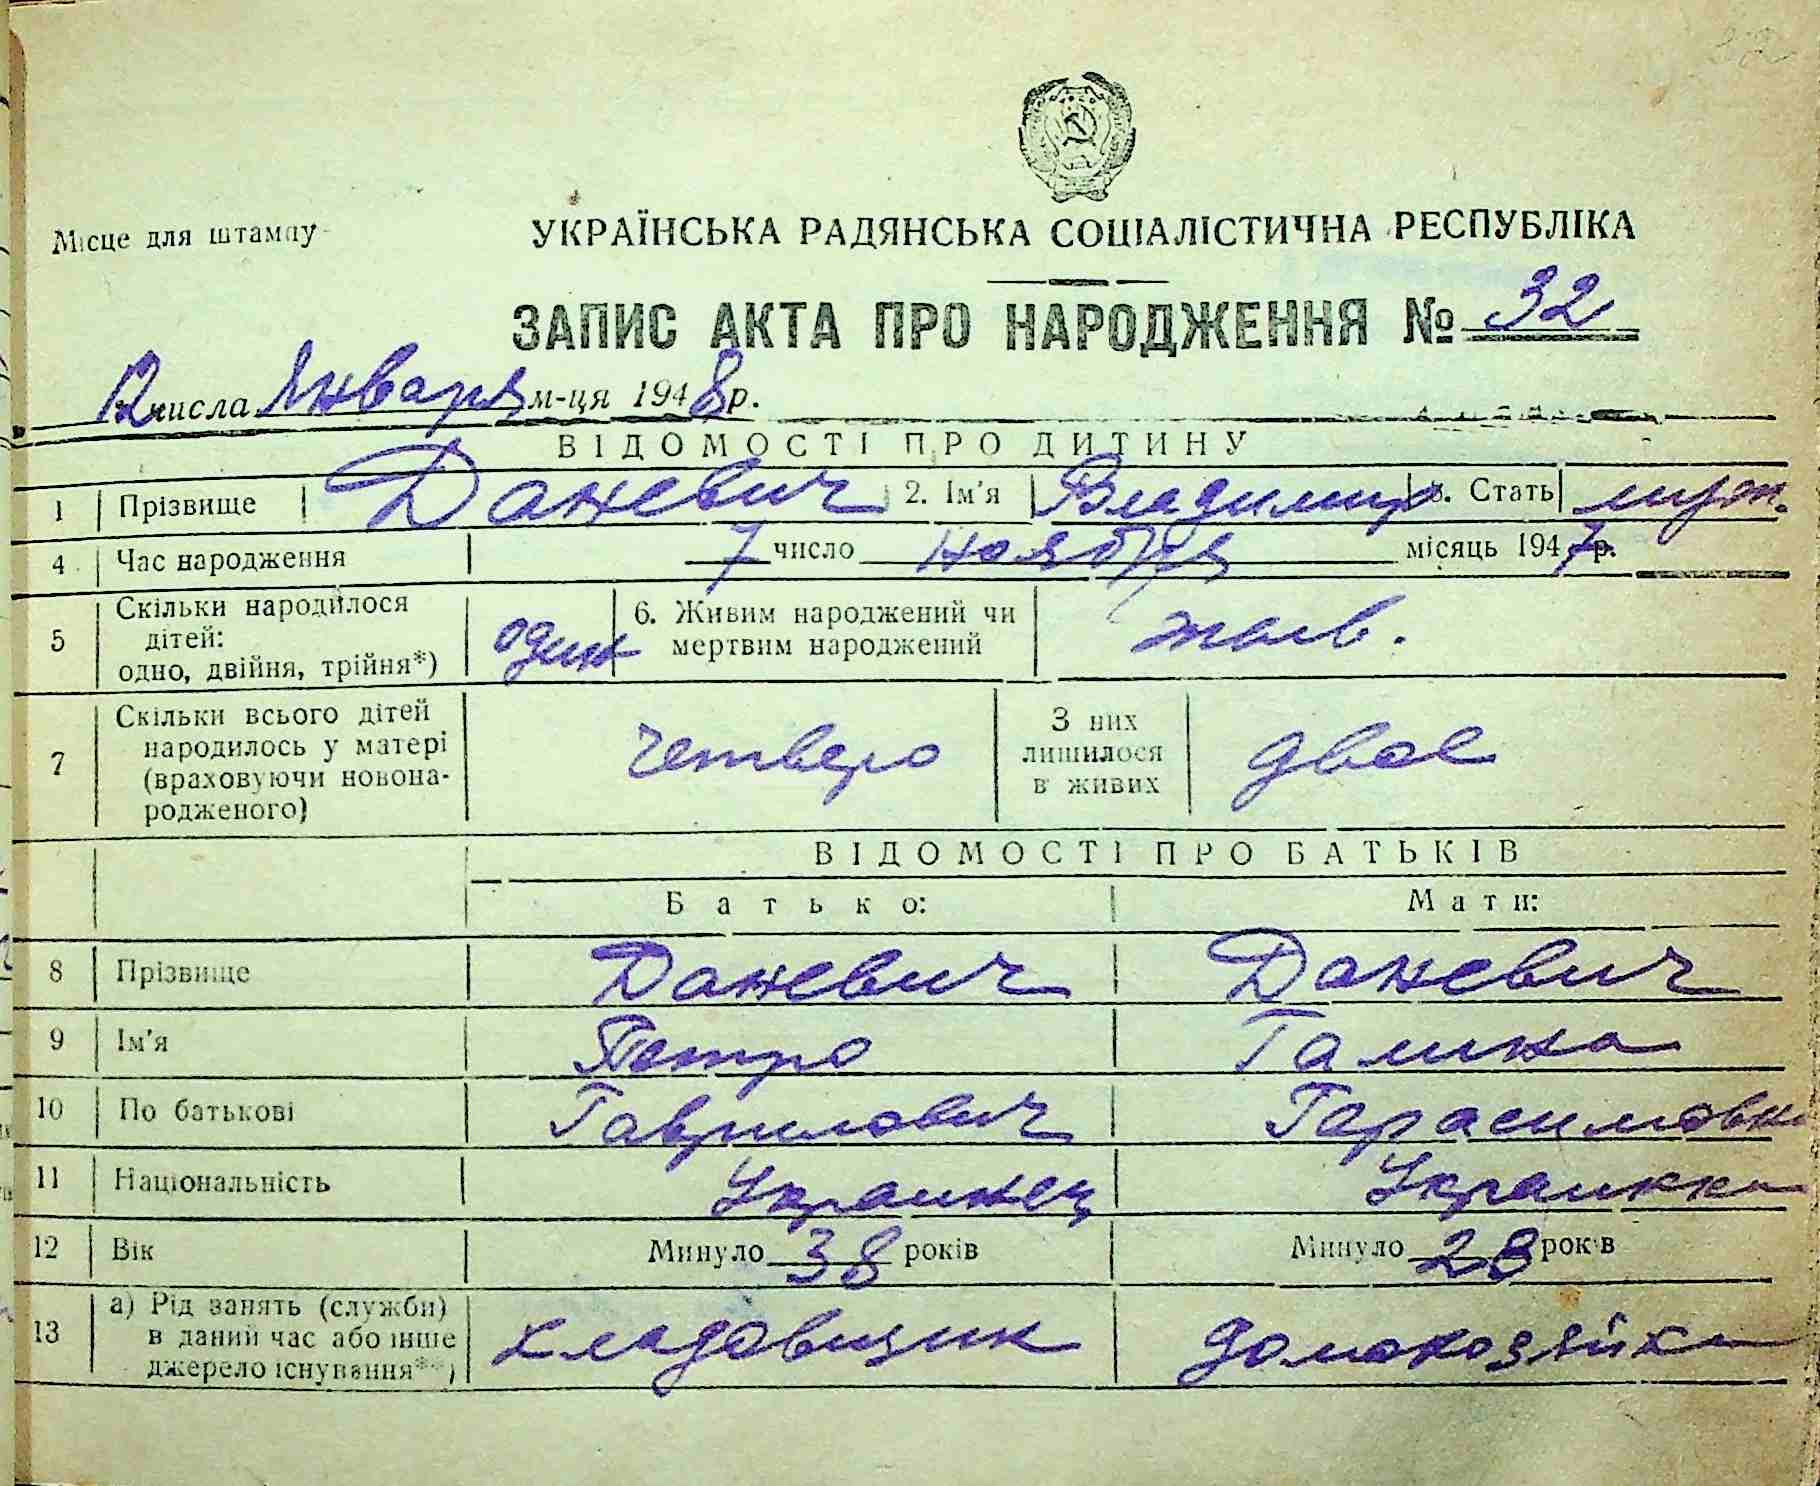 Місце для штампу
УКРАЇНСЬКА РАДЯНСЬКА СОЦІАЛІСТИЧНА РЕСПУБЛІКА
ЗАПИС АКТА ПРО НАРОДЖЕННЯ № 32
12 числа Января м-ця 1948 р.
ВІДОМОСТІ ПРО ДИТИНУ
1 Прізвище Даневич 2. Ім'я Владимир 3. Стать муж.
4 Час народження 7 число ноября місяць 1947 р.
5 Скільки народилося дітей: одно, двійня, трійня*) один 6. Живим народжений чи мертвим народжений жив.
7 Скільки всього дітей народилось у матері (враховуючи новонародженого) четверо З них лишилося в живих двое
ВІДОМОСТІ ПРО БАТЬКІВ
Батько: Мати:
8 Прізвище Даневич Даневич
9 Ім'я Петро Галина
10 По батькові Гаврилович Герасимовна
11 Національність Украинец Украинка
12 Вік Минуло 38 років Минуло 28 років
13 а) Рід занять (служби) в даний час або інше джерело існування**) кладовщик домохозяйка